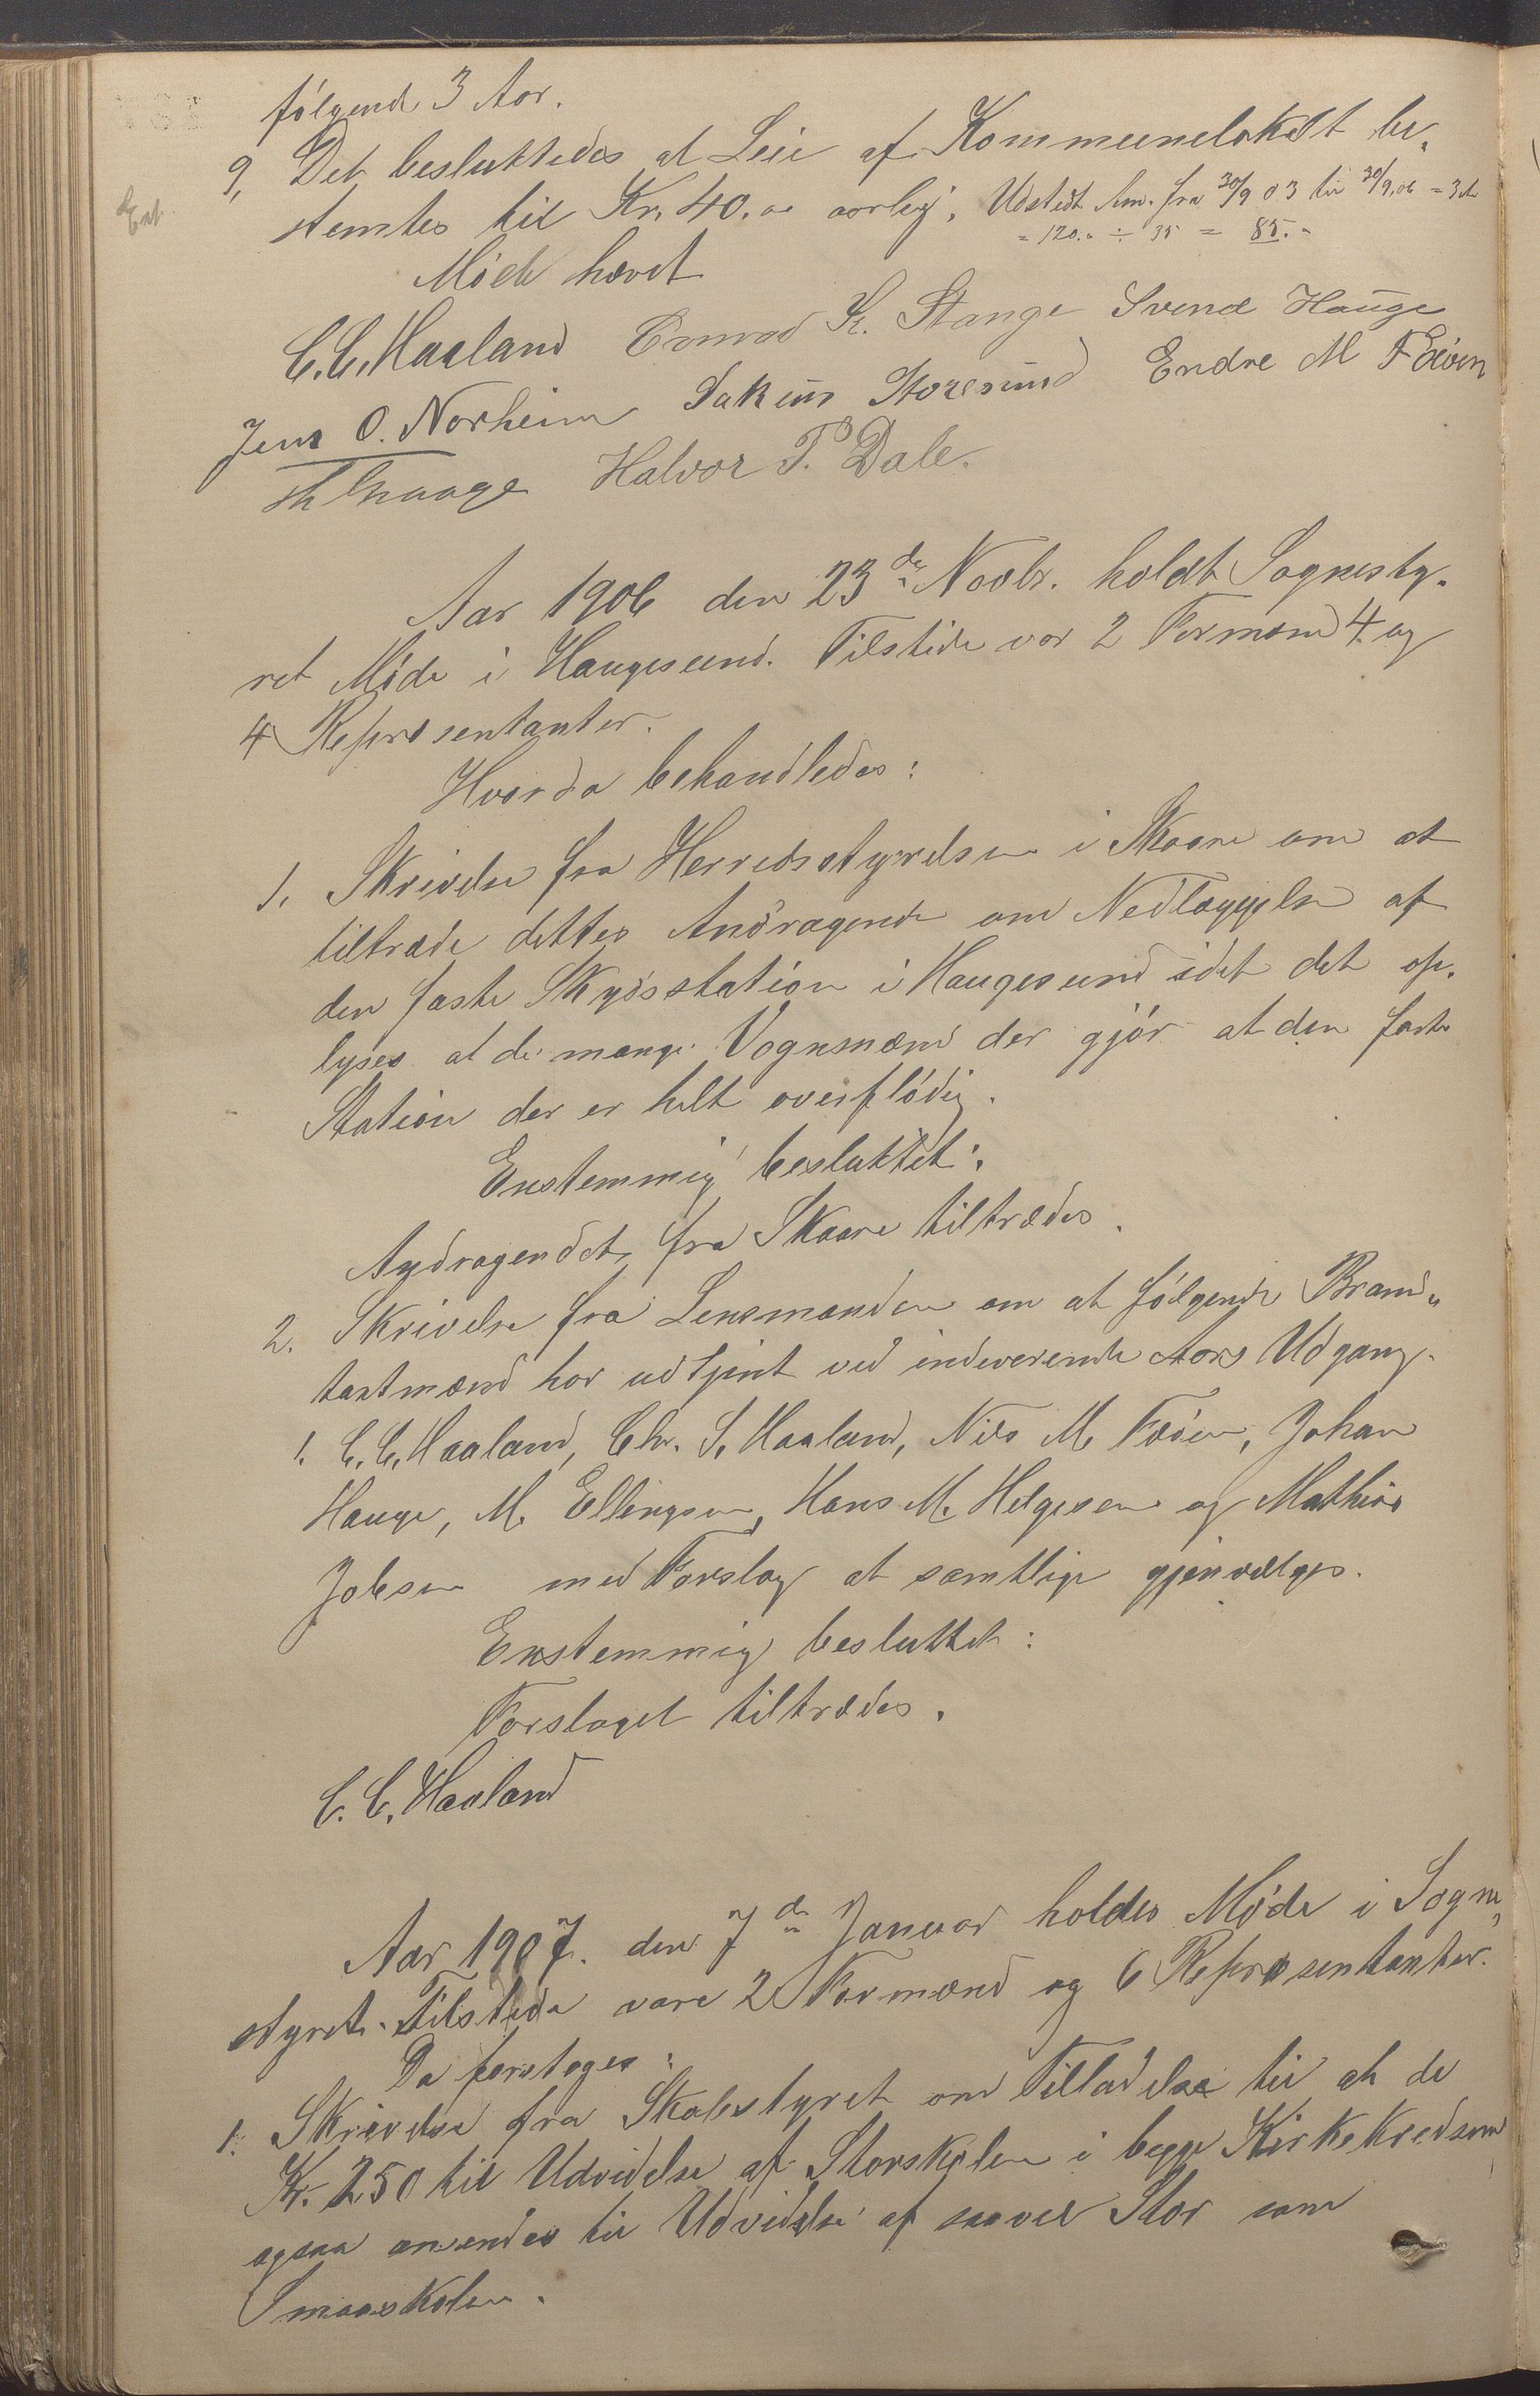 følgende 3 Aar.
9, Det besluttedes at Leie af Kommunelokalet be„
Ext.
stemtes til Kr. 40.00 aarlig. Udstedt Anv. fra 30/9 03 til 30/9.06 = 3 A
= 120.„ ÷ 35 = 85.„
Møde hævet
C. C. Haaland Conrad K. Stange Svend Hauge
Jens O. Norheim Sakun Storesund Endre M Fæøen
Halvor T. Dale.
Aar 1906 den 23de Novbr. holdt Sognesty„
ret Møde i Haugesund. Tilstede var 2 Formænd 4 og
4 Repræsentanter.
Hvorda behandledes:
1. Skrivelse fra Herredsstyrelsen i Skaare om at
tiltræde dettes Andragende om Nedlæggelse af
den faste Skydsstation i Haugesund idet det op„
lyses at de mange Vognmænd der gjør at den faste
Station der er helt overflødig.
Enstemmig besluttet:
Andragendet fra Skaare tiltrædes.
2. Skrivelse fra Lensmanden om at følgende Brand„
takstmænd har udtjent ved indeværende Aars Udgang.
1. C. C. Haaland, Chr. S. Haaland, Nils M. Fæøen, Johan
Hauge, M. Ellingsen, Hans M. Helgesen og Mathias
Jobsen med Forslag at samtlige gjenvælges.
Enstemmig besluttet:
Forslaget tiltrædes.
C. C. Haaland
Aar 1907. den 7de Januar holdes Møde i Sogne„
styret. Tilstede vare 2 Formænd og 6 Repræsentanter.
Da foretoges:
1. Skrivelse fra Skolestyret om Tilladelse til at de
Kr. 250 til Udvidelse af Storskolen i begge Kirkekredse
ogsaa anvendes til Udvidelse af saavel Stor som
Smaaskolen.